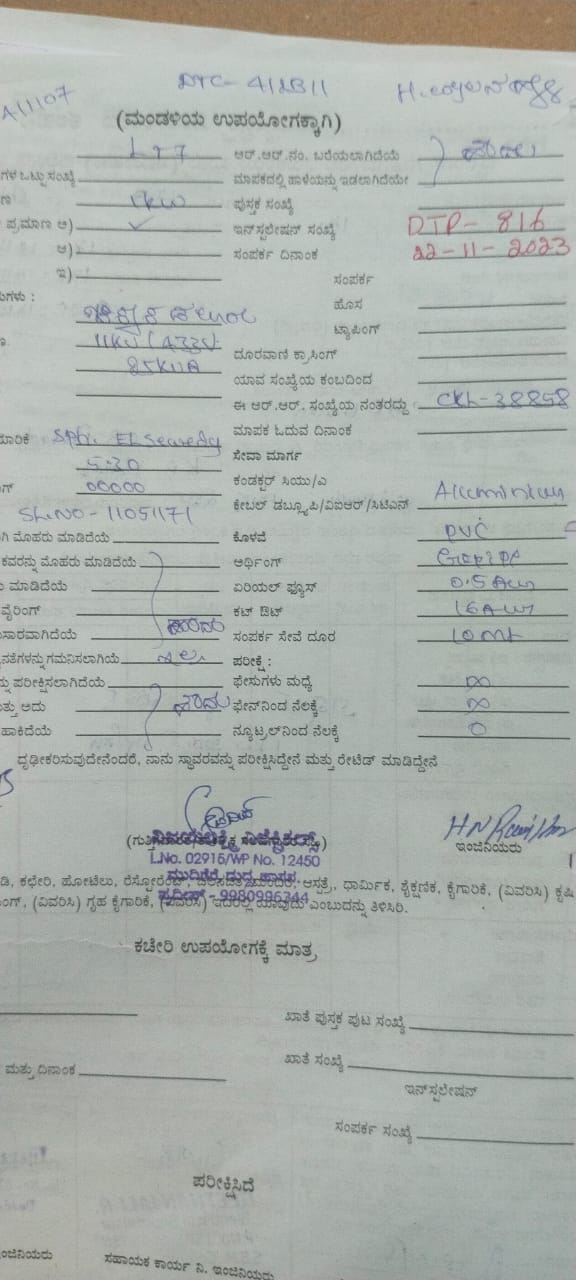 A11107
DTC- 412B11
(ಮಂಡಳಿಯ ಉಪಯೋಗಕ್ಕಾಗಿ)
LT7 ಆರ್.ಆರ್.ನಂ. ಬರೆಯಲಾಗಿದೆಯೆ ಹೌದು
ಗಳ ಒಟ್ಟು ಸಂಖ್ಯೆ ಮಾಪಕದಲ್ಲಿ ಹಾಳೆಯನ್ನು ಇಡಲಾಗಿದೆಯೇ
1KW ಪುಸ್ತಕ ಸಂಖ್ಯೆ
ಪ್ರಮಾಣ ಅ) ✓ ಇನ್‌ಸ್ಟಲೇಷನ್ ಸಂಖ್ಯೆ DTP- 816
ಆ) ಸಂಪರ್ಕ ದಿನಾಂಕ 22-11-2023
ಇ) ಸಂಪರ್ಕ
ಹೊಸ
ಟ್ಯಾಪಿಂಗ್
11KV/433V ದೂರವಾಣಿ ಕ್ರಾಸಿಂಗ್
25KVA ಯಾವ ಸಂಖ್ಯೆಯ ಕಂಬದಿಂದ
ಈ ಆರ್.ಆರ್. ಸಂಖ್ಯೆಯ ನಂತರದ್ದು CKL-38858
ಮಾಪಕ ಓದುವ ದಿನಾಂಕ
5-30 ಸೇವಾ ಮಾರ್ಗ
00000 ಕಂಡಕ್ಟರ್ ಸಿಯು/ಎ Aluminium
Sl.NO-11051171 ಕೇಬಲ್ ಡಬ್ಲ್ಯೂಪಿ/ವಿಐಆರ್/ಸಿಟಿಎಸ್
ಗಿ ಮೊಹರು ಮಾಡಿದೆಯೆ ಕೊಳವೆ PVC
ಕವರನ್ನು ಮೊಹರು ಮಾಡಿದೆಯೆ ಅರ್ಥಿಂಗ್
ಮಾಡಿದೆಯೆ ಏರಿಯಲ್ ಫ್ಯೂಸ್
ವೈರಿಂಗ್ ಕಟ್ ಔಟ್
ಸಾರವಾಗಿದೆಯೆ ಹೌದು ಸಂಪರ್ಕ ಸೇವೆ ದೂರ 10 mt
ನತೆಗಳನ್ನು ಗಮನಿಸಲಾಗಿಯೆ ಇಲ್ಲ ಪರೀಕ್ಷೆ :
ನ್ನು ಪರೀಕ್ಷಿಸಲಾಗಿದೆಯೆ ಫೇಸುಗಳು ಮಧ್ಯೆ ∞
ತ್ತು ಅದು ಹೌದು ಫೇಸ್‌ನಿಂದ ನೆಲಕ್ಕೆ ∞
ಹಾಕಿದೆಯೆ ನ್ಯೂಟ್ರಲ್‌ನಿಂದ ನೆಲಕ್ಕೆ 0
ದೃಢೀಕರಿಸುವುದೇನೆಂದರೆ, ನಾನು ಸ್ಥಾವರವನ್ನು ಪರೀಕ್ಷಿಸಿದ್ದೇನೆ ಮತ್ತು ರೇಟೆಡ್ ಮಾಡಿದ್ದೇನೆ
ಇಂಜಿನಿಯರು
L.No. 02916/WP No. 12450
ಡಿ, ಕಛೇರಿ, ಹೋಟೆಲು, ರೆಸ್ಟೋರೆಂಟ್, ಆಸ್ಪತ್ರೆ, ಧಾರ್ಮಿಕ, ಶೈಕ್ಷಣಿಕ, ಕೈಗಾರಿಕೆ, (ವಿವರಿಸಿ) ಕೃಷಿ
ಂಗ್, (ವಿವರಿಸಿ) ಗೃಹ ಕೈಗಾರಿಕೆ, (ವಿವರಿಸಿ) ಇದರಲ್ಲಿ ಯಾವುದು ಎಂಬುದನ್ನು ತಿಳಿಸಿರಿ.
9980996344
ಕಚೇರಿ ಉಪಯೋಗಕ್ಕೆ ಮಾತ್ರ
ಖಾತೆ ಪುಸ್ತಕ ಪುಟ ಸಂಖ್ಯೆ
ಮತ್ತು ದಿನಾಂಕ ಖಾತೆ ಸಂಖ್ಯೆ
ಇನ್‌ಸ್ಟಲೇಷನ್
ಸಂಪರ್ಕ ಸಂಖ್ಯೆ
ಪರೀಕ್ಷಿಸಿದೆ
ಇಂಜಿನಿಯರು ಸಹಾಯಕ ಕಾರ್ಯ ನಿ. ಇಂಜಿನಿಯರು